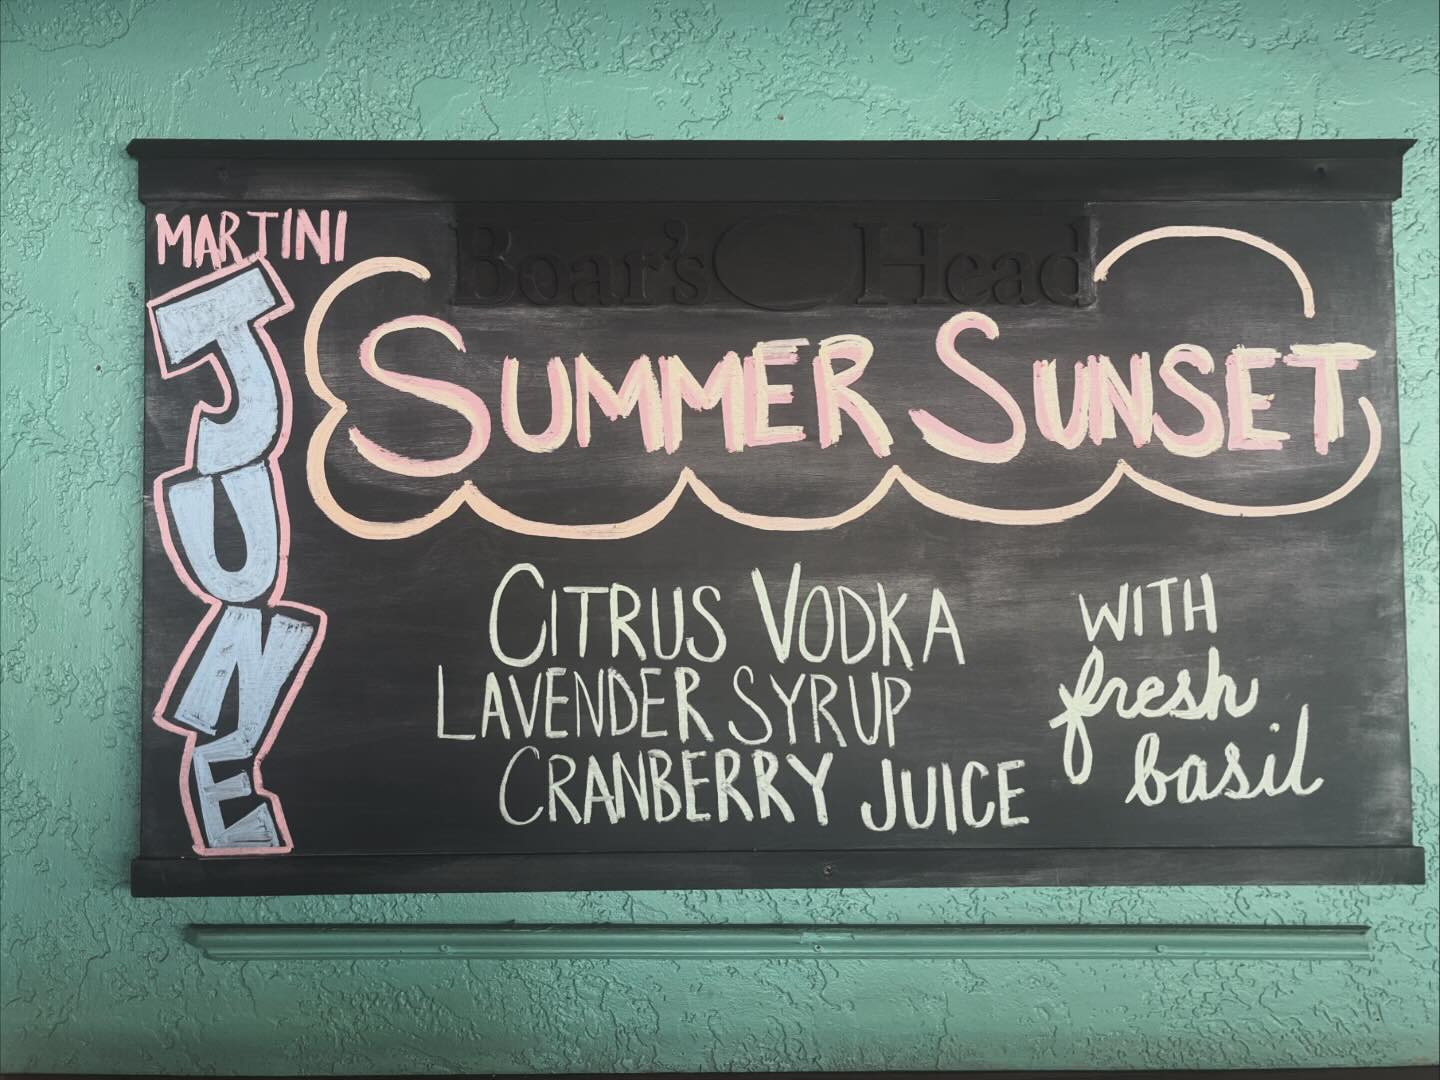 MARTINI
JUNE
Boar's Head
SUMMER SUNSET
CITRUS VODKA
LAVENDER SYRUP
CRANBERRY JUICE
WITH
fresh
basil